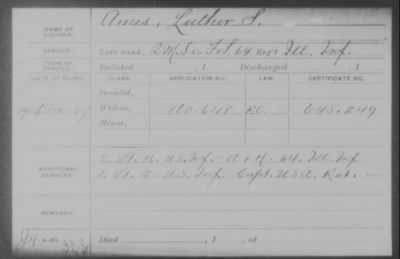 NAME OF SOLDIER: Ames, Luther S.
SERVICE: Late rank, Q.M.S. Co. F&S, 64 Reg't Ill. Inf.
TERM OF SERVICE: Enlisted , 1 Discharged , 1
DATE OF FILING. CLASS. APPLICATION NO. LAW. CERTIFICATE NO.
Invalid,
Widow, 860.648 645.249
Minor,
ADDITIONAL SERVICES: 2. Lt. 16. U.S. Inf. A & H. 64. Ill. Inf.
1. Lt. 2. U.S. Inf. Capt. U.S.A. Ret.
REMARKS:
Died , 1 , at